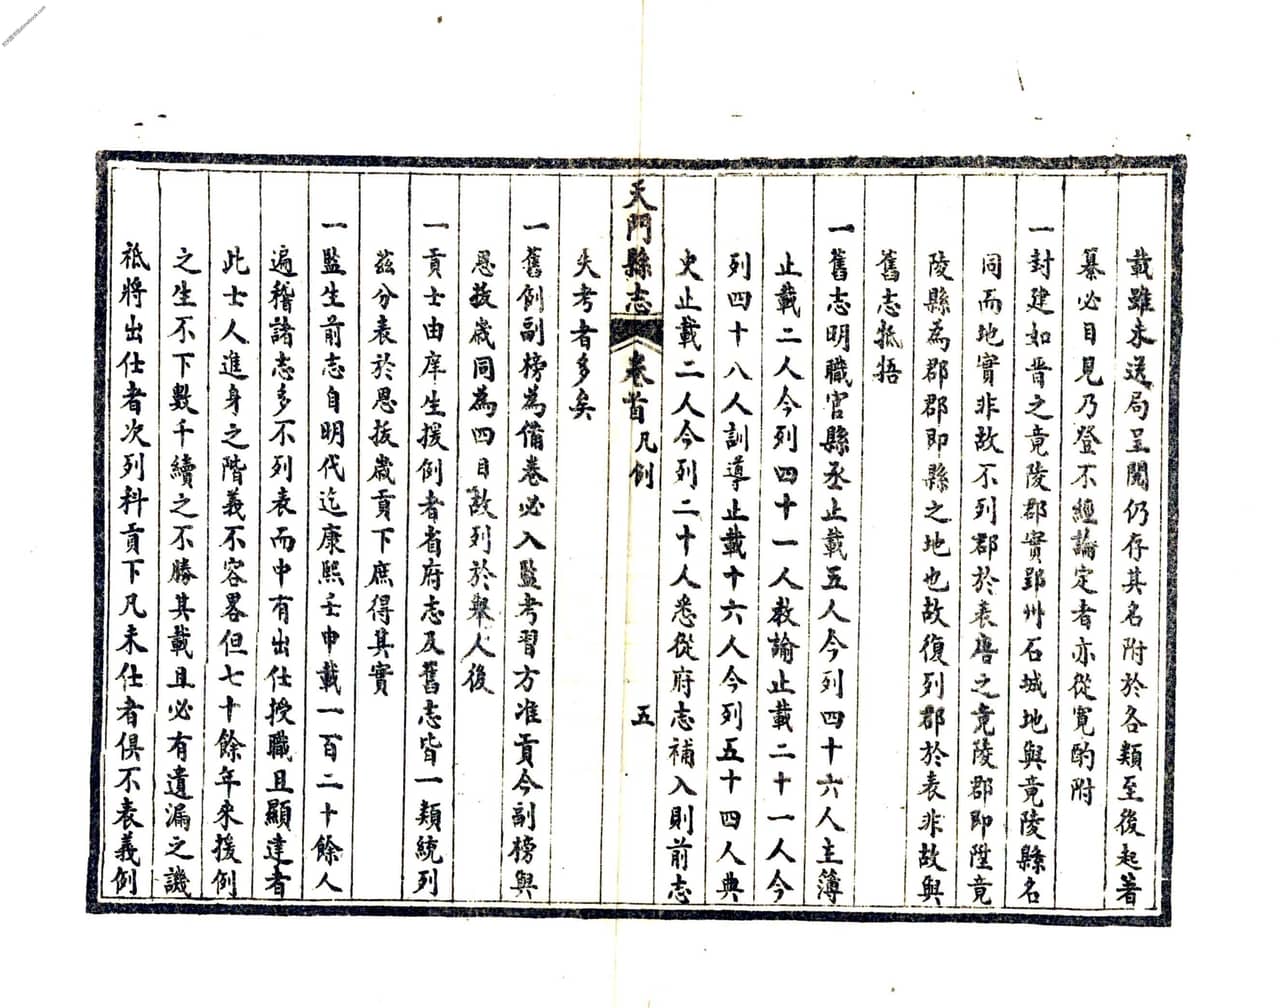 載雖未送局呈閱仍存其名附於各類至後起著
纂必目見乃登不經論定者亦從寬酌附
一封建如晋之竟陵郡實郢州石城地與竟陵縣名
同而地實非故不列郡於表唐之竟陵郡即陞竟
陵縣為郡郡即縣之地也故復列郡於表非故與
舊志牴牾
一舊志明職官縣丞止載五人今列四十六人主簿
止載二人今列四十一人教諭止載二十一人今
列四十八人訓導止載十六人今列五十四人典
史止載二人今列二十人悉從府志補入則前志
失考者多矣
天門縣志 卷首 凡例 五
一舊例副榜為備卷必入監考習方准貢今副榜與
恩拔歲同為四目故列於舉人後
一貢士由庠生援例者省府志及舊志皆一類統列
茲分表於恩拔歲貢下庶得其實
一監生前志自明代迄康熙壬申載一百二十餘人
遍稽諸志多不列表而中有出仕授職且顯達者
此士人進身之階義不容畧但七十餘年來援例
之生不下數千續之不勝其載且必有遺漏之譏
祗將出仕者次列科貢下凡未仕者俱不表義例